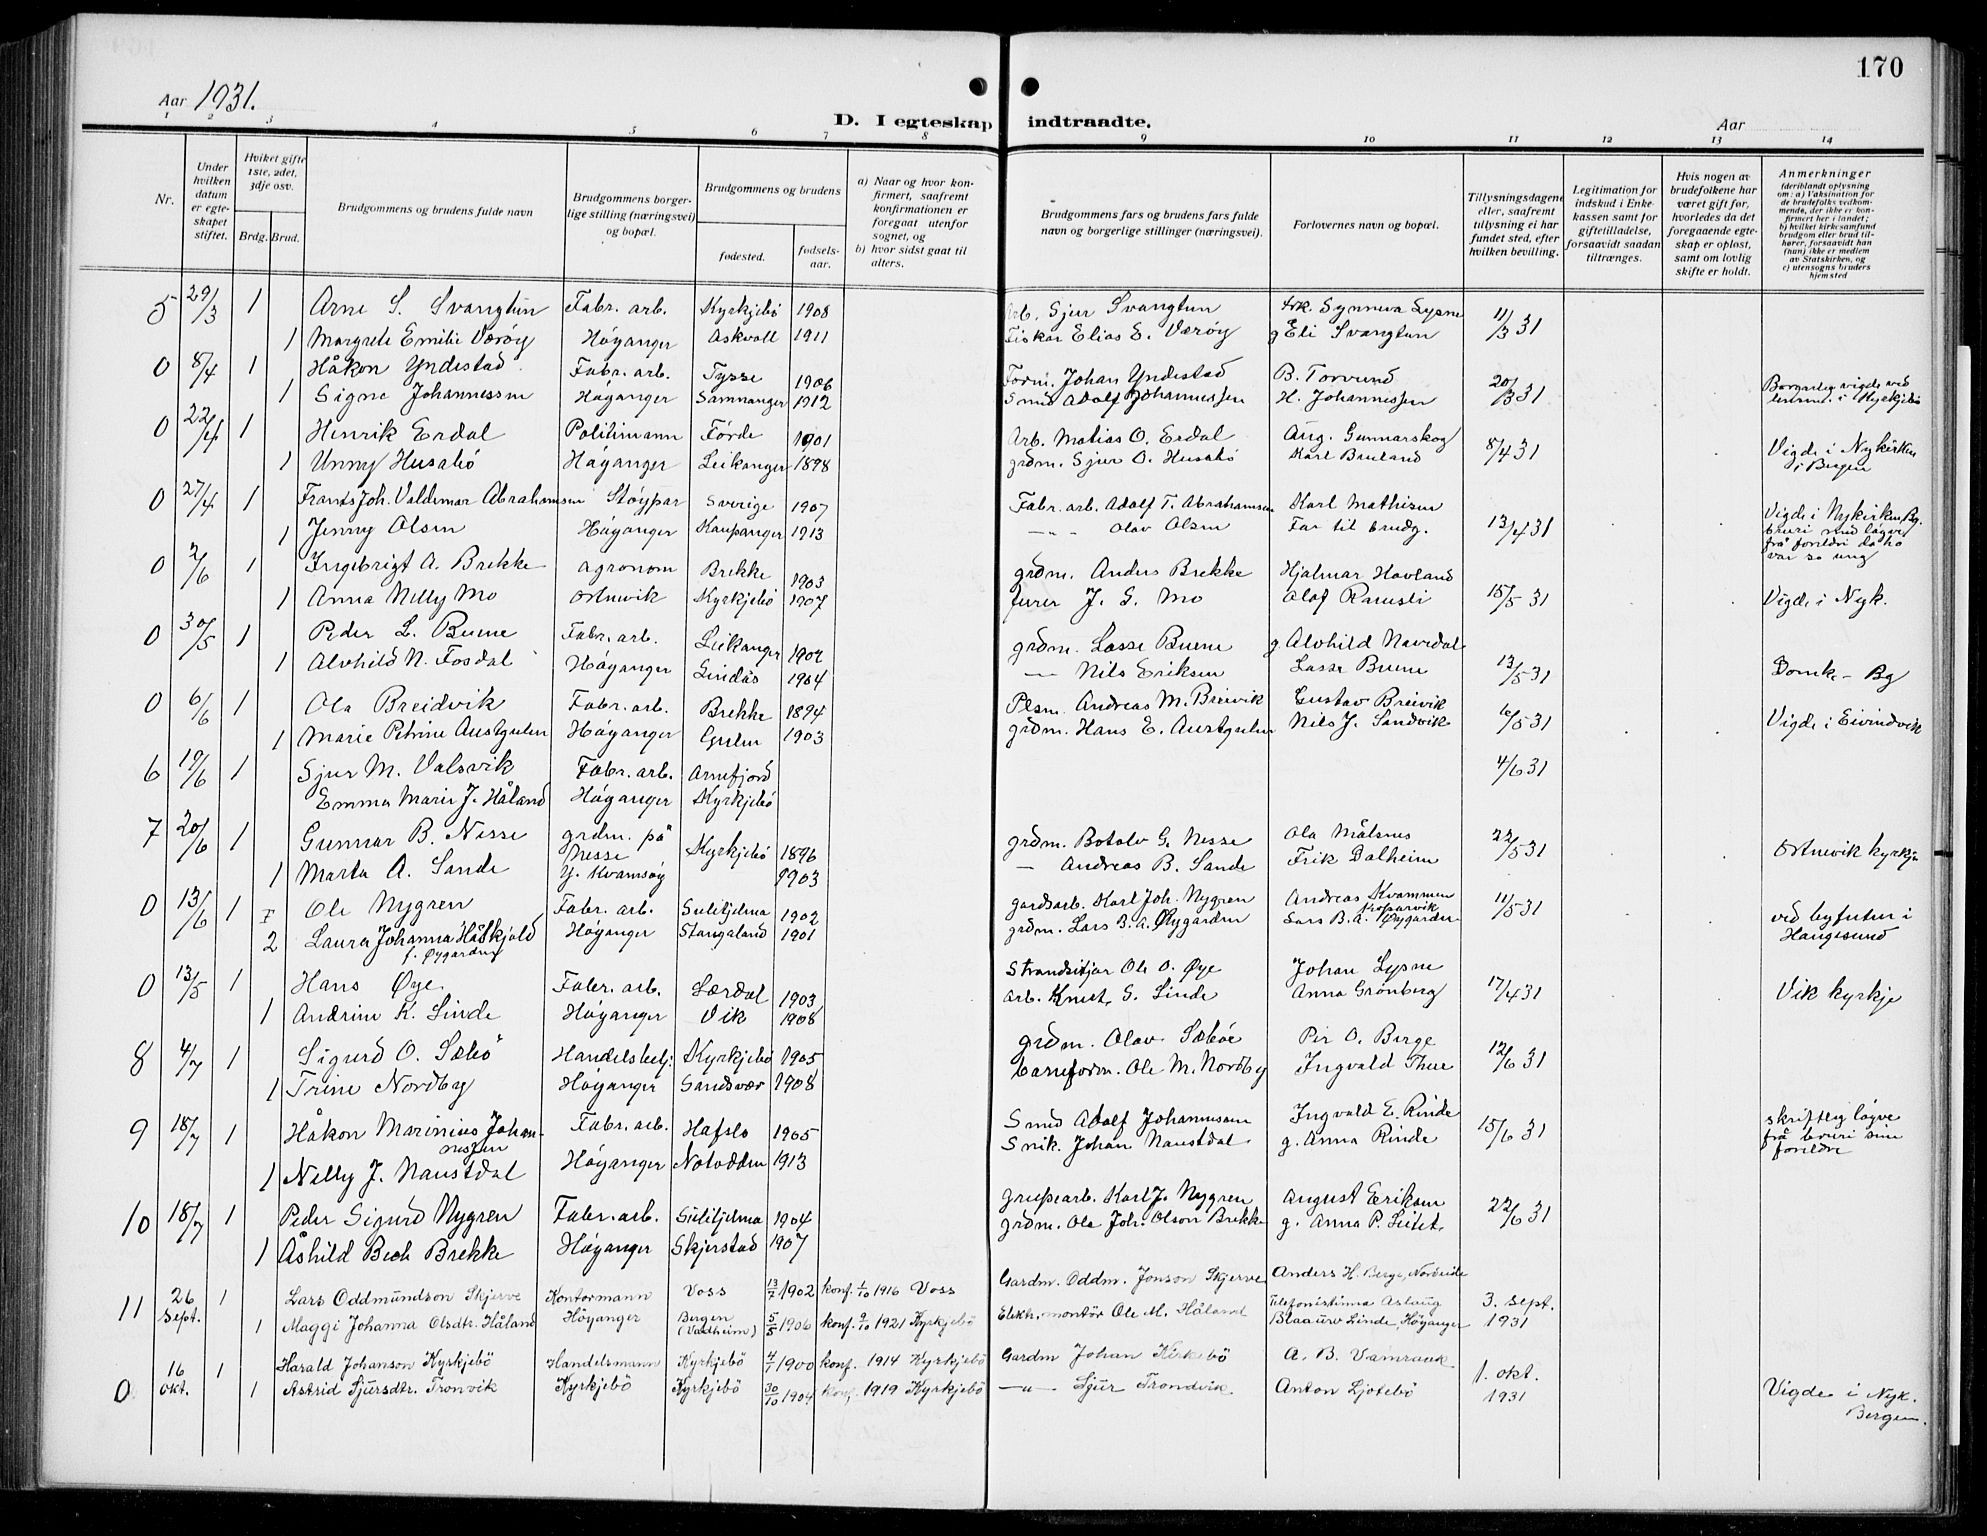 170
Aar 1931.
D. I egteskap indtraadte.
Aar
1 2 3 4 5 6 7 8 9 10 11 12 13 14
Nr.
Under hvilken datum er egteskapet stiftet.
Hviket gifte 1ste, 2det, 3dje osv.
Brdg. Brud.
Brudgommens og brudens fulde navn
Brudgommens borgerlige stilling (næringsvei) og bopæl.
Brudgommens og brudens
fødested.
fødselsaar.
a) Naar og hvor konfirmert, saafremt konfirmationen er foregaat utenfor sognet, og
b) hvor sidst gaat til alters.
Brudgommens fars og brudens fars fulde navn og borgerlige stillinger (næringsvei).
Forlovernes navn og bopæl.
Tillysningsdagene eller, saafremt tillysning ei har fundet sted, efter hvilken bevilling.
Legitimation for indskud i Enkekassen samt for giftetilladelse, forsaavidt saadan tiltrænges.
Hvis nogen av brudefolkene har været gift før, hvorledes da det foregaaende egteskap er opløst, samt om lovlig skifte er holdt.
Anmerkninger (deriblandt oplysning om: a) Vaksination for de brudefolks vedkommende, der ikke er konfirmert her i landet; b) hvilket kirkesamfund brudgom eller brud tilhører, forsaavidt han (hun) ikke er medlem av Statskirken, og c) utensogns bruders hjemsted
5 29/3 1 Arne S. Svangtun Fabr. arb. Kyrkjebö 1908 Arb. Sjur Svangtun frk. Synneva Lysne 11/3 31
1 Margrete Emilie Værøy Höyanger Askvoll 1911 Fiskar Elias E. Værøy g Eli Svangtun
0 8/4 1 Håkon Yndestad Fabr. arb. Tysse 1906 Form. Johan Yndestad B. Torvund 20/3 31
1 Signe Johannessen Höyanger Samnanger 1912 Smed Adolf Johannessen H. Johannessen Borgarleg vigde ved lensm. i Kyrkjebö
0 22/4 1 Henrik Erdal Politimann Förde 1901 Arb. Matias O. Erdal Aug. Gunnarskog 8/4 31 Vigde i Nykirken i Bergen
1 Unny Husabö Höyanger Leikanger 1898 grdm. Sjur O. Husabö Karl Bruland
0 27/4 1 Frants Joh. Valdemar Abrahamsen Stöypar Sverige 1907 Fabr. arb. Adolf T. Abrahamsen Karl Mathisen
1 Jenny Olsen Höyanger Kaupanger 1913 — " — Olav Olsen Far til brudg. 13/4 31 Vigde i Nykirken Bg. bruri med lögve frå foreldri da ho var so ung
0 2/6 1 Ingebrigt A. Brekke agronom Brekke 1903 grdm. Anders Brekke Hjalmar Hovland
1 Anna Nelly Mo Ortnevik Kyrkjebö 1907 furer J. S. Mo Olaf Ramsli 15/5 31 Vigde i Nyk.
0 30/5 1 Peder L. Buene Fabr. arb. Leikanger 1902 grdm. Lasse Buene g Alvhild Navedal
1 Alvhild N. Fosdal Höyanger Lindås 1904 — Nils Eriksen Lasse Buene 13/5 31 Domk. Bg
0 6/6 1 Ola Breidvik Fabr. arb. Brekke 1894 Plsm. Andreas M. Breivik Gustav Breivik
1 Marie Petrine Austgulen Höyanger Gulen 1903 grdm. Hans E. Austgulen Nils J. Sandvik 6/5 31 Vigde i Eivindvik
6 19/6 1 Sjur M. Valsvik Fabr. arb. Arnefjord 4/6 31
Emma Marie J. Håland Höyanger Kyrkjebö
7 20/6 1 Gunnar B. Nesse grdm. på Nesse Kyrkjebö 1896 grdm. Botolv G. Nesse Ola Målsnes 22/5 31 Ortnevik kyrkje
1 Marta A. Sande y. Kvamsöy 1903 — Andreas B. Sande Frik Dalheim
0 13/6 1 Ole Nygren Fabr. arb. Sulitjelma 1902 gardsarb. Karl Joh. Nygren Andreas Kvammen 11/5 31
2 Laura Johanna Håskjold f. Øygarden Höyanger Stangaland 1901 grdm. Lars B. A. Øygarden Lars B. A. Øygarden ved byfuten i Haugesund
0 13/5 1 Hans Øye Fabr. arb. Lærdal 1903 Strandsitjar Ole O. Øye Johan Lysne
1 Andrine K. Linde Höyanger Vik 1908 arb. Knut S. Linde Anna Grönberg 17/4 31 Vik kyrkje
8 4/7 1 Sigurd O. Sæbö Handelsbetj. Kyrkjebö 1905 grdm. Olav Sæböe Per O. Berge 12/6 31
1 Trine Nordby Höyanger Sandsvær 1908 baneform. Ole M. Nordby Ingvald Thue
9 18/7 1 Håkon Marinius Johannessen Fabr. arb. Hafslo 1905 Smed Adolf Johannessen Ingvald E. Rinde 15/6 31 skriftleg lögve frå bruri sine foreldre
1 Nelly J. Naustdal Höyanger Notodden 1913 Snik. Johan Naustdal g. Anna Rinde
10 18/7 1 Peder Sigurd Nygren Fabr. arb. Sulitjelma 1904 grubearb. Karl J. Nygren August Eriksen 22/6 31
1 Åshild Bech Brekke Höyanger Skjerstad 1907 grdm. Ole Joh. Olson Brekke g. Anna P. Seltet.
11 26 Sept. 1 Lars Oddmundson Skjerve Kontormann Voss 13/7 1902 konf. 1/10 1916 Voss Gardm. Oddm. Jonson Skjerve Anders H. Berge, Nordeide
1 Maggi Johanna Olsdtr. Håland Höyanger Bergen (Vadheim) 5/5 1906 konf. 9/10 1921 Kyrkjebö Elektr. montör Ole M. Håland Telefonistinna Aslaug Blaauw Linde, Höyanger 3. sept. 1931
0 16 okt. 1 Harald Johanson Kyrkjebö Handelsmann Kyrkjebö 4/1 1900 konf. 1914 Kyrkjebö Gardm Johan Kirkebö A. B. Vamraak 1. okt. 1931
1 Astrid Sjursdtr. Tronvik Kyrkjebö Kyrkjebö 30/10 1904 konf. 1919 Kyrkjebö —"— Sjur Trondvik. Anton Ljotebö Vigde i Nyk. Bergen.